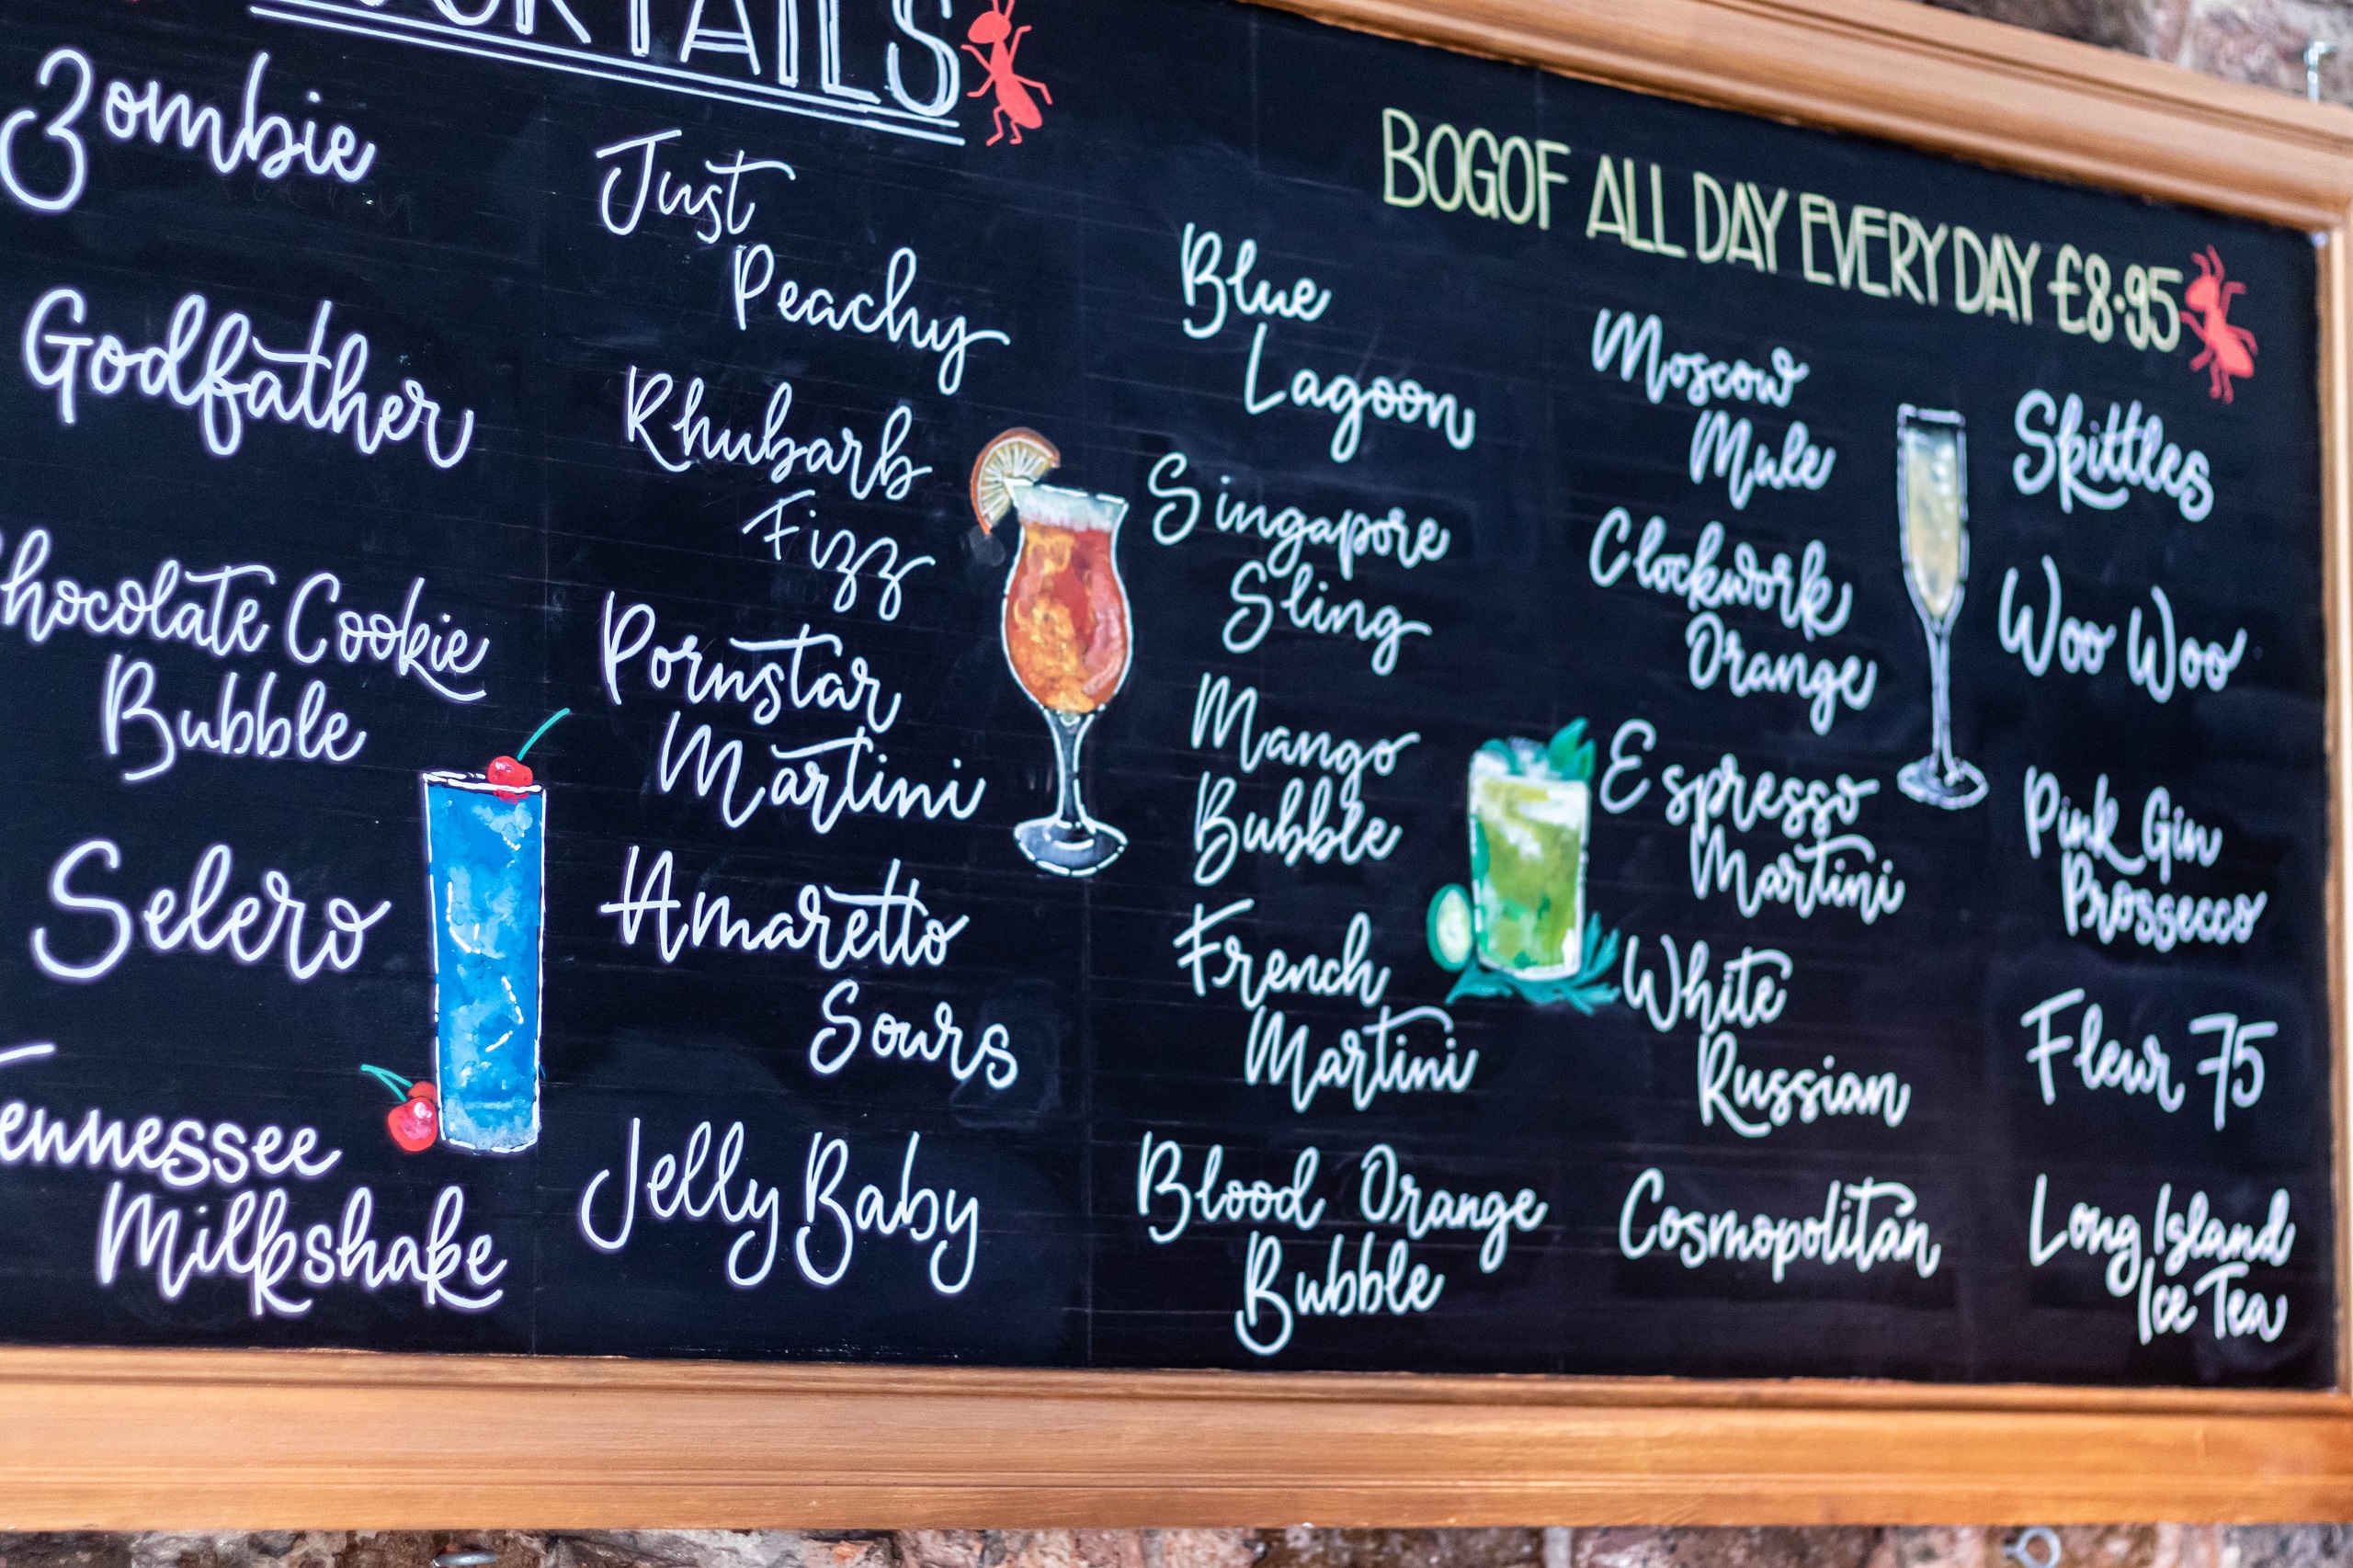 COCKTAILS
BOGOF ALL DAY EVERY DAY £8.95
Zombie
Godfather
Chocolate Cookie
Bubble
Selero
Tennessee
Milkshake
Just
Peachy
Rhubarb
Fizz
Pornstar
Martini
Amaretto
Sours
Jelly Baby
Blue
Lagoon
Singapore
Sling
Mango
Bubble
French
Martini
Blood Orange
Bubble
Moscow
Mule
Clockwork
Orange
Espresso
Martini
White
Russian
Cosmopolitan
Skittles
Woo Woo
Pink Gin
Prossecco
Fleur 75
Long Island
Ice Tea